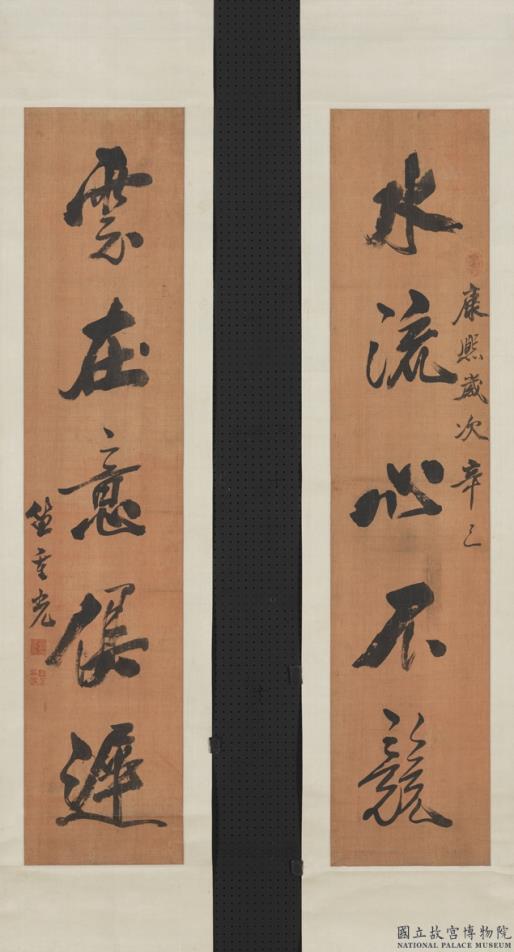 水流心不競
康熙歲次辛巳
雲在意俱遲
笪重光
國立故宮博物院
NATIONAL PALACE MUSEUM